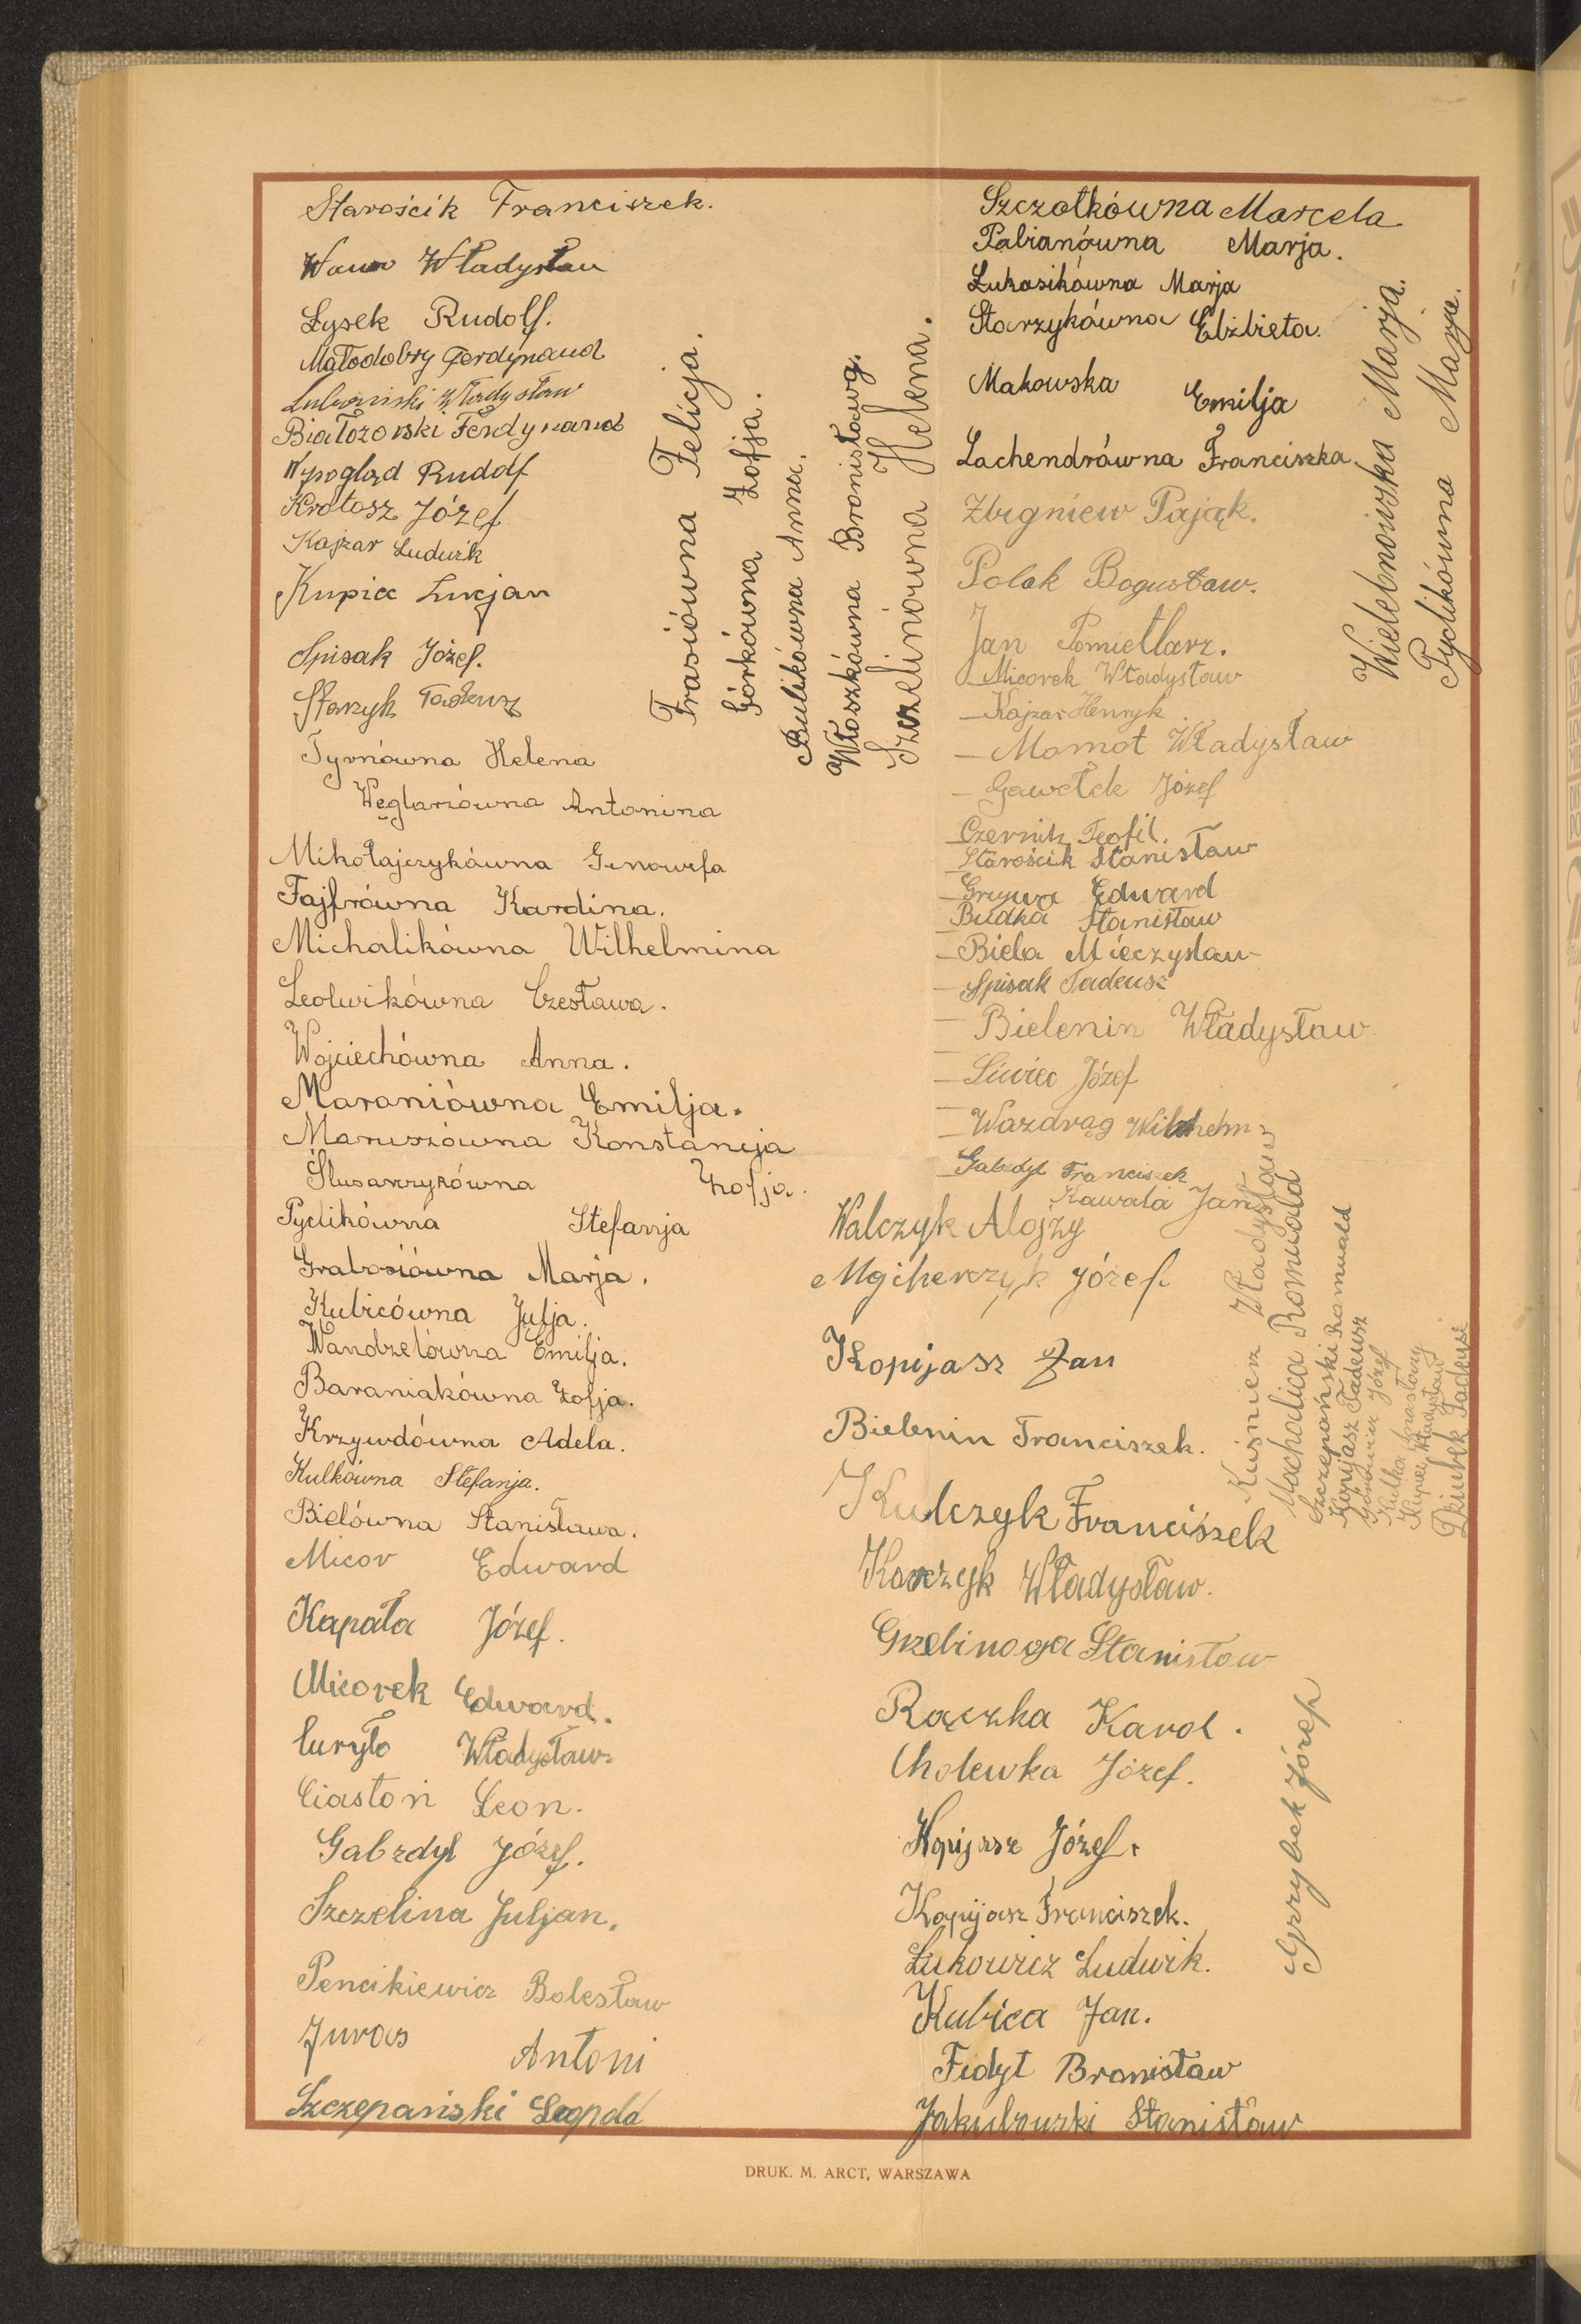 Starościk Franciszek.
Wawr Władysław
Łysek Rudolf.
Małodobry Ferdynand
Władysław
Białożorski Ferdynand
Wypogląd Rudolf
Krotosz Józef
Kajzar Ludwik
Kupiec Lucjan
Spisak Józef.
Starzyk Tadeusz
Tyrnówna Helena
Węglarzówna Antonina
Mikołajczykówna Genowefa
Fajfrówna Karolina.
Michalikówna Wilhelmina
Ledwikówna Czesława.
Wojciechówna Anna.
Maroniówna Emilja.
Maruszówna Konstancja
Ślusarczykówna Zofja.
Pyclikówna Stefanja
Grabosiówna Marja.
Kubicówna Julja.
Wandzelówna Emilja.
Baraniakówna Zofja.
Krzywdówna Adela.
Kulkówna Stefanja.
Bielówna Stanisława.
Micor Edward
Kapała Józef.
Micorek Edward.
Curyło Władysław
Ciastoń Leon.
Gabzdyl Józef.
Szczelina Juljan.
Pencikiewicz Bolesław
Juras Antoni
Szczepański Leopold
Frasiówna Felicja.
Górkówna Zofja.
Bulikówna Anna.
Włoszkówna Bronisława.
Szczelinówna Helena.
Szczotkówna Marcela
Pabianówna Marja.
Łukasikówna Marja
Starzykówna Elżbieta.
Makowska Emilja
Lachendrówna Franciszka.
Zbigniew Pająk.
Polak Bogusław.
Jan Pomietlarz.
Micorek Władysław
— Kajzar Henryk
— Momot Władysław
— Gawełek Józef
— Czernik Teofil.
— Starościk Stanisław
— Gryga Edward
— Budka Stanisław
— Biela Mieczysław
— Spisak Tadeusz
— Bielenin Władysław
— Siwiec Józef
— Wazdrąg Wilhelm
— Gabzdyl Franciszek
Kawala Jan
Walczyk Alojzy
Józef.
Kopijasz Jan
Bielenin Franciszek.
Kulczyk Franciszek
Korczyk Władysław.
Grzebinoga Stanisław
Rączka Karol.
Cholewka Józef.
Kopijasz Józef.
Kopijasz Franciszek.
Łukowicz Ludwik.
Kubica Jan.
Fidyt Bronisław
Jakubowski Stanisław
Wielebnowska Marja.
Pyclikówna Marja.
Kuśnierz Władysław
Machalica Romuald
Szczepański Romuald
Kopijasz Tadeusz
Józef
Kulka Anastazy
Kupiec Władysław
Dziubek Tadeusz
Grzybek Józef
DRUK. M. ARCT, WARSZAWA